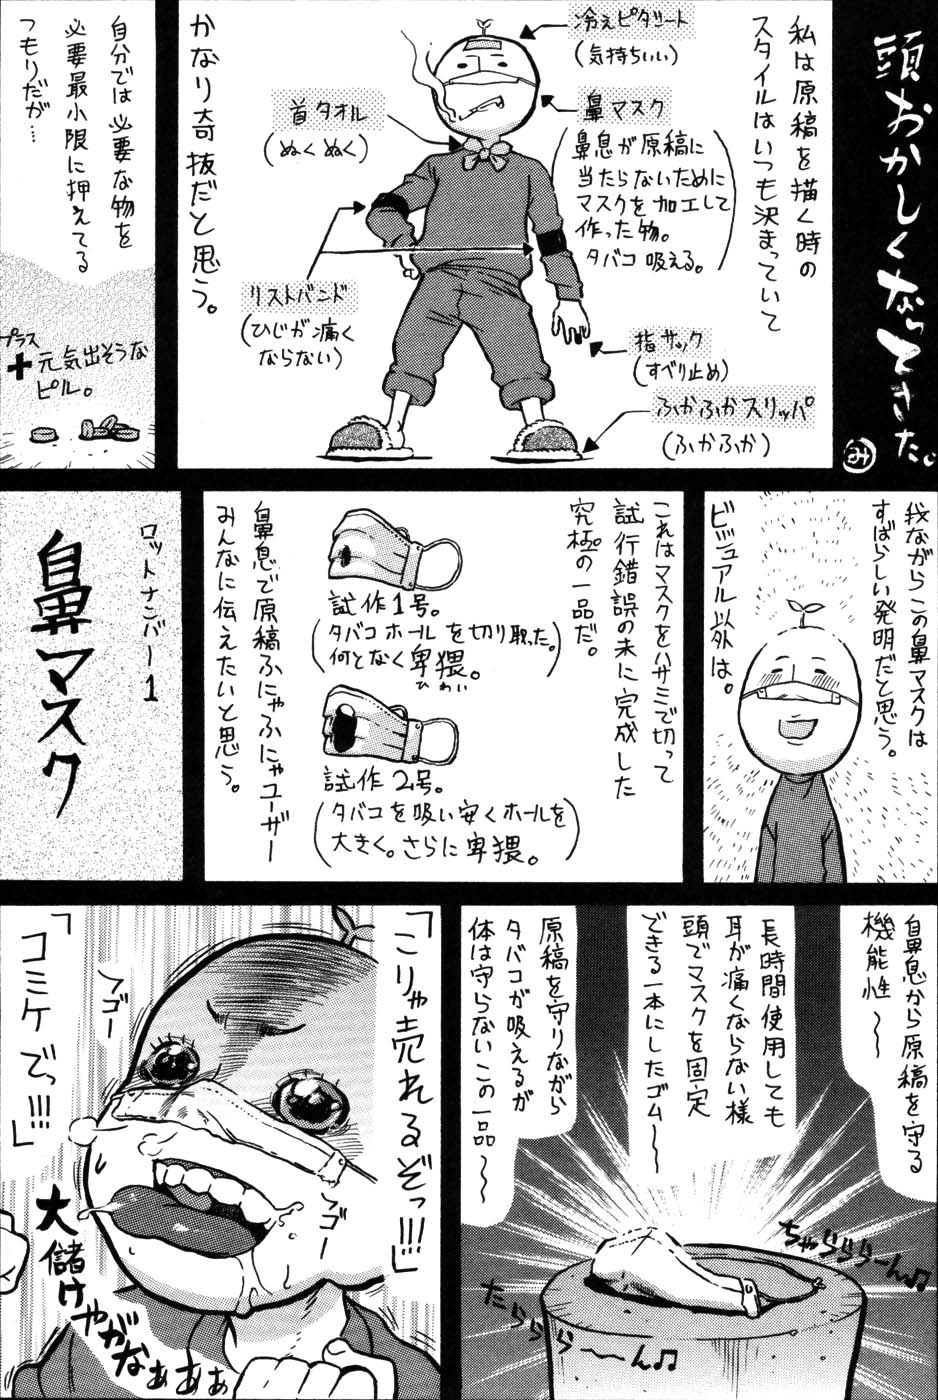 頭おかしくなってきた。
み
私は原稿を描く時の
スタイルはいつも決まっていて
冷えピタシート
(気持ちいい)
鼻マスク
鼻息が原稿に
当たらないために
マスクを加工して
作った物。
タバコ吸える。
首タオル
(ぬくぬく)
リストバンド
(ひじが痛く
ならない)
指サック
(すべり止め)
ふかふかスリッパ
(ふかふか)
かなり奇抜だと思う。
自分では必要な物を
必要最小限に押えてる
つもりだが…
プラス
+元気出そうな
ピル。
我ながらこの鼻マスクは
すばらしい発明だと思う。
ビジュアル以外は。
これはマスクをハサミで切って
試行錯誤の末に完成した
究極の一品だ。
試作1号。
(タバコホールを切り取った。
何となく卑猥。)
ひわい
試作2号。
(タバコを吸い安くホールを
大きく。さらに卑猥。)
鼻息で原稿ふにゃふにゃユーザー
みんなに伝えたいと思う。
ロットナンバー1
鼻マスク
鼻息から原稿を守る
機能性〜
長時間使用しても
耳が痛くならない様
頭でマスクを固定
できる一本にしたゴム〜
原稿を守りながら
タバコが吸えるが
体は守らないこの一品〜
ちゃらららーん♫
たららら〜ん♫
「こりゃ売れるぞっ!!!」
「コミケでっ!!!」
フゴー
フゴー
大儲けやがなぁぁぁ